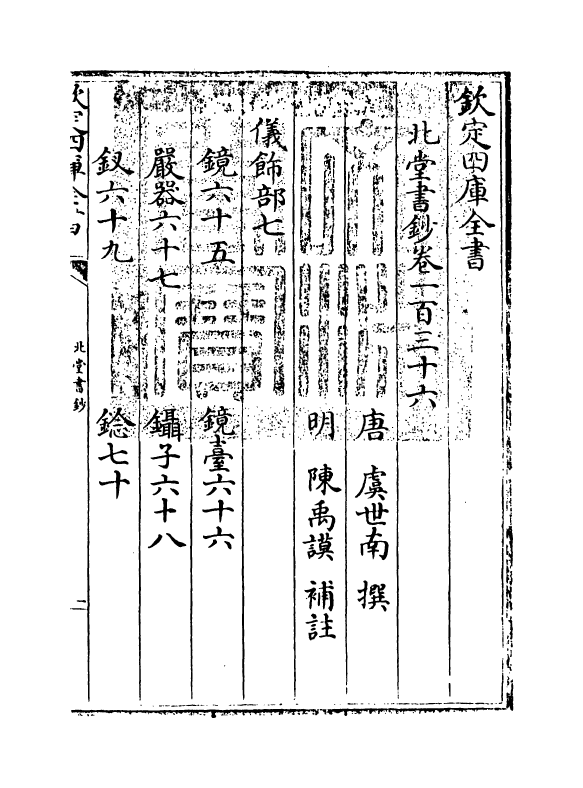 欽定四庫全書
北堂書鈔卷一百三十六
唐 虞世南 撰
明 陳禹謨 補註
儀飾部七
鏡六十五 鏡臺六十六
嚴器六十七 鑷子六十八
釵六十九 鎰七十
北堂書鈔